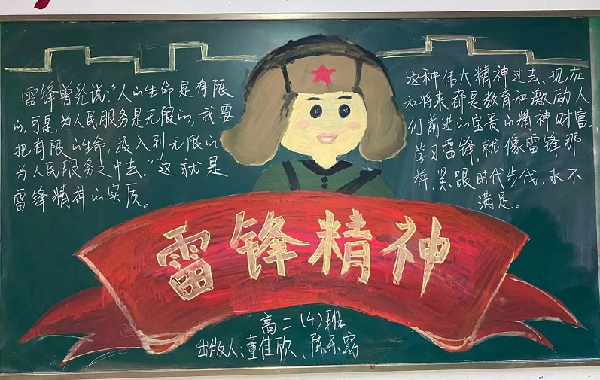 雷锋曾说说:“人的生命是有限
的,可是为人民服务是无限的,我要
把有限的生命,投入到无限的
为人民服务之中去。”这就是
雷锋精神的实质。
这种伟大精神过去、现在
和将来都是教育和激励人
们前进的宝贵的精神财富,
学习雷锋就像雷锋那
样,紧跟时代步伐,永不
满足。
雷锋精神
高二(4)班
出版人:董佳欣、陈